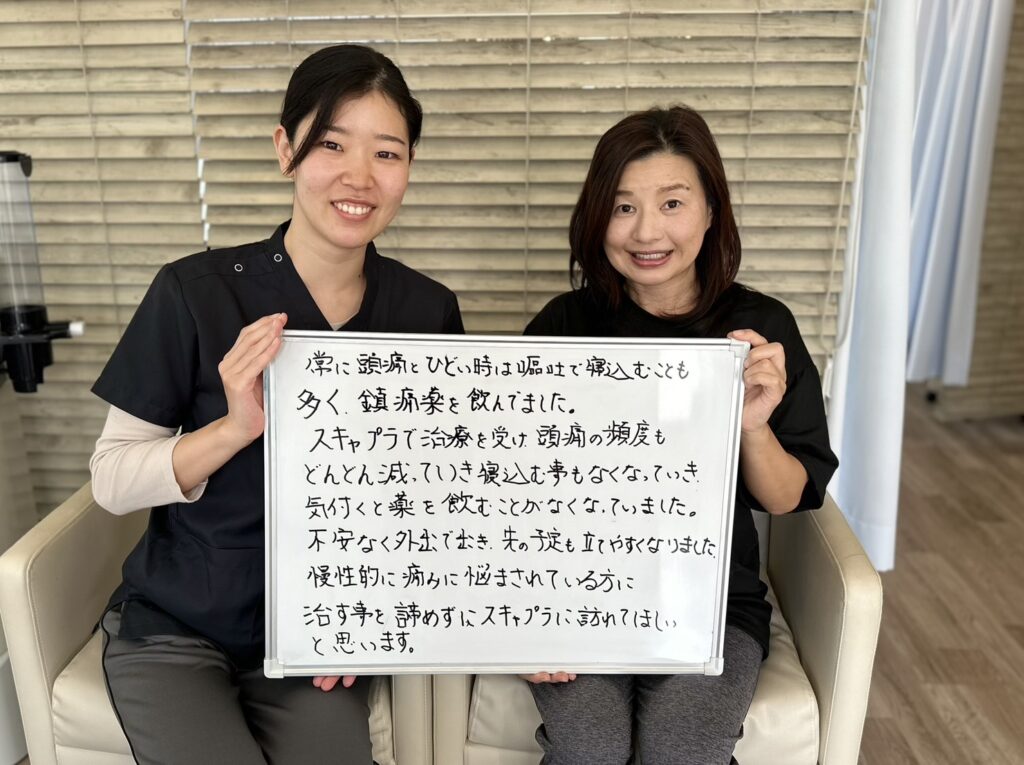 常に頭痛とひどい時は嘔吐で寝込むことも
多く、鎮痛薬を飲んでました。
スキャプラで治療を受け頭痛の頻度も
どんどん減っていき寝込む事もなくなっていき
気付くと薬を飲むことがなくなっていました。
不安なく外出でき、先の予定も立てやすくなりました。
慢性的に痛みに悩まされている方に
治す事を諦めずにスキャプラに訪れてほしい
と思います。